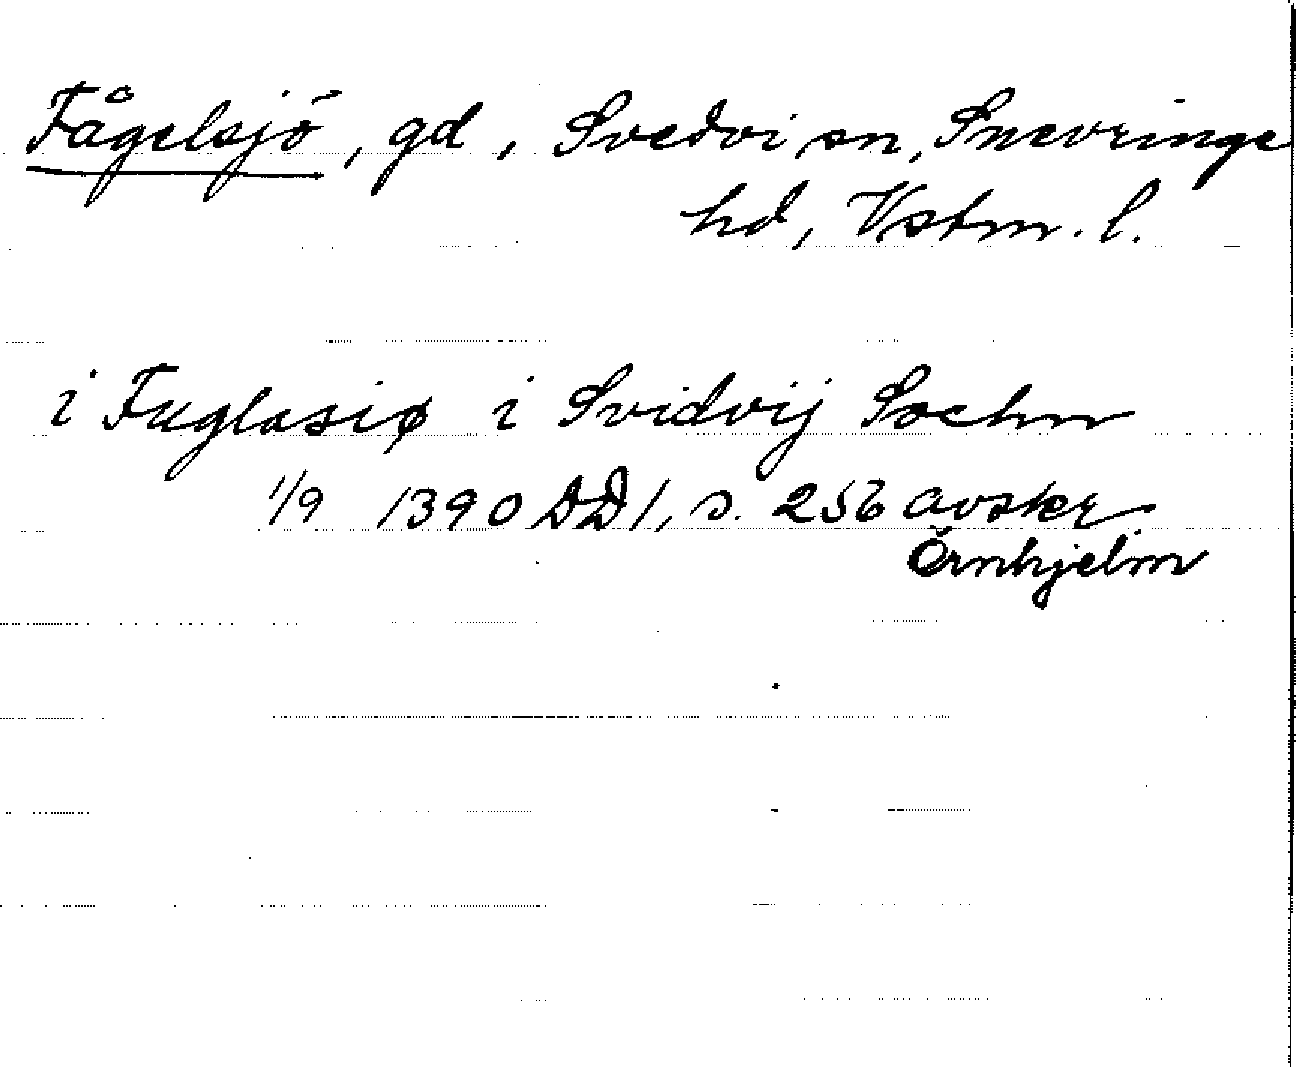 Fågelsjö, gd, Svedvi sn, Snevringe
hd, Vstm. l.
i Fuglasiø i Svidvij Sochn
1/9 1390 DD 1, s. 256 avskr
Örnhjelm